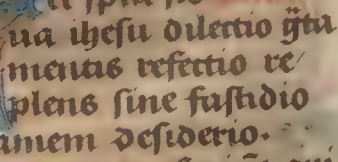 ua ihesu dilectio g̃ta
mentis refectio re/
plens sine fastidio
amem desiderio.